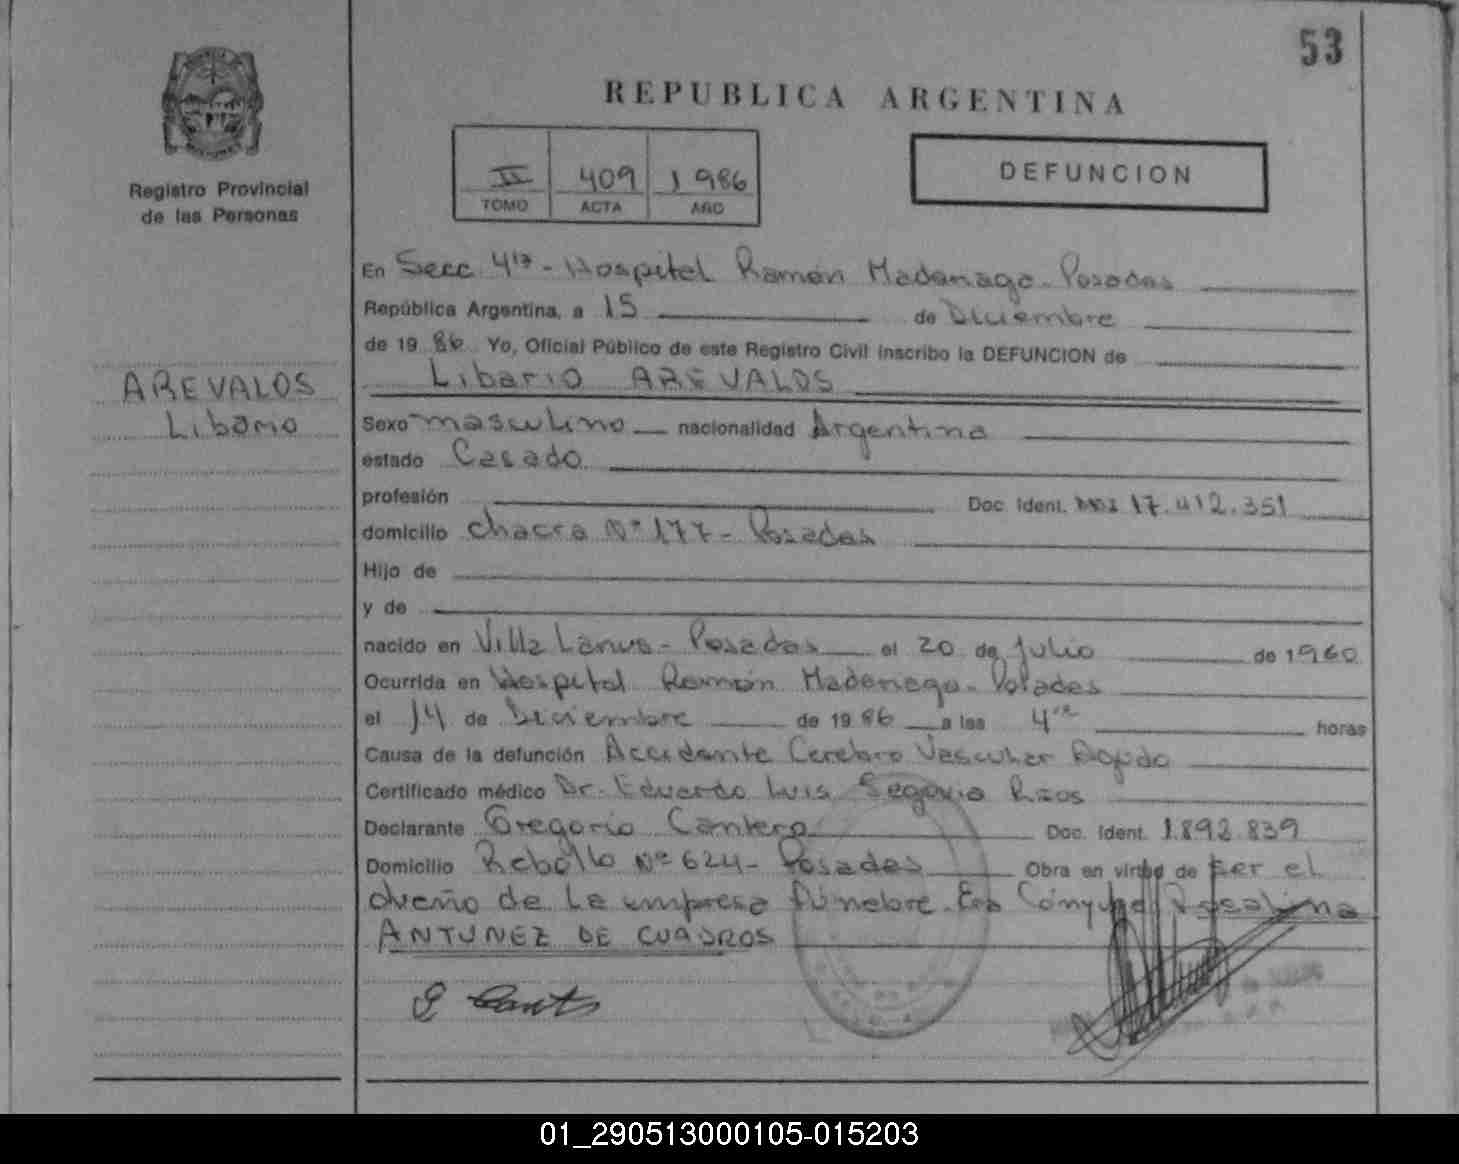 53
REPUBLICA ARGENTINA
Registro Provincial
de las Personas
II 409 1986
TOMO ACTA AÑO
DEFUNCION
AREVALOS
Libario
En Secc 4ta - Hospital Ramón Madariaga - Posadas
República Argentina, a 15 de Diciembre
de 19 86 Yo, Oficial Público de este Registro Civil inscribo la DEFUNCION de
Libario AREVALOS
Sexo masculino nacionalidad Argentina
estado Casado
profesión Doc. Ident. 17.412.351
domicilio Chacra Nº 177 - Posadas
Hijo de
y de
nacido en Villa Lanus - Posadas el 20 de Julio de 1960
Ocurrida en Hospital Ramón Madariaga - Posadas
el 14 de Diciembre de 19 86 a las 4 horas
Causa de la defunción Accidente Cerebro Vascular Agudo
Certificado médico Dr. Eduardo Luis Segovia Ríos
Declarante Gregorio Cantero Doc. Ident. 1.892.839
Domicilio Rebollo Nº 624 - Posadas Obra en virtud de ser el
dueño de la empresa fúnebre. Cónyuge Rosalina
ANTUNEZ DE CUADROS
01_290513000105-015203